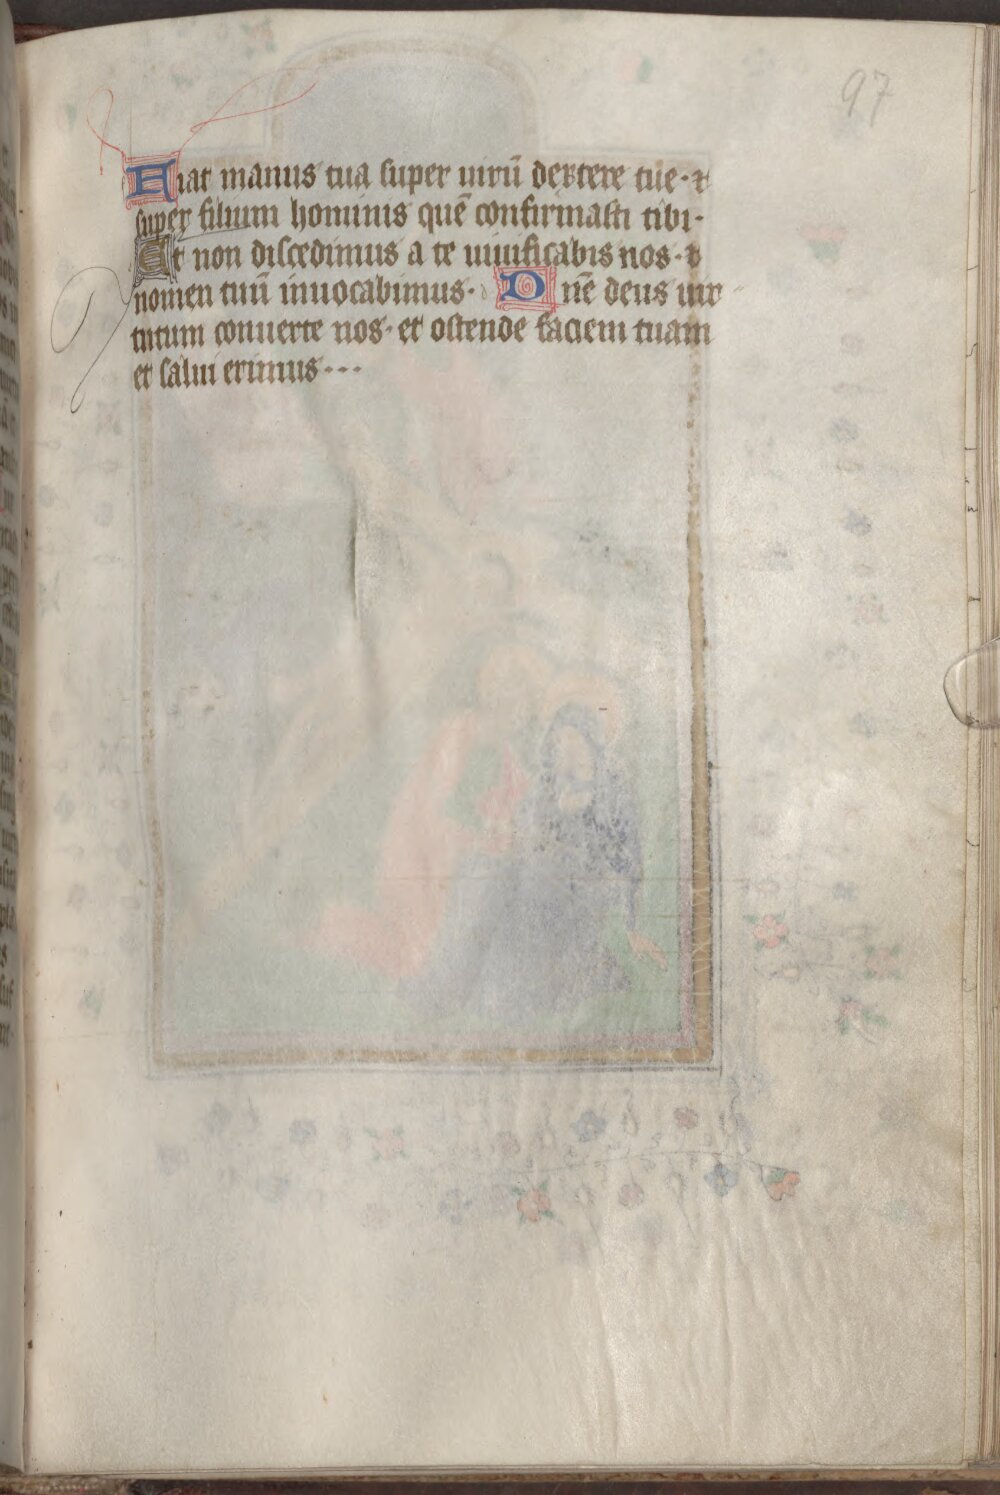 97
Fiat manus tua super uirū dextere tue · ⁊
super filium hominis quē confirmasti tibi ·
Et non discedimus a te uiuificabis nos · ⁊
nomen tuū inuocabimus · Dnē deus uir
tutum conuerte nos · et ostende faciem tuam
et salui erimus · · ·